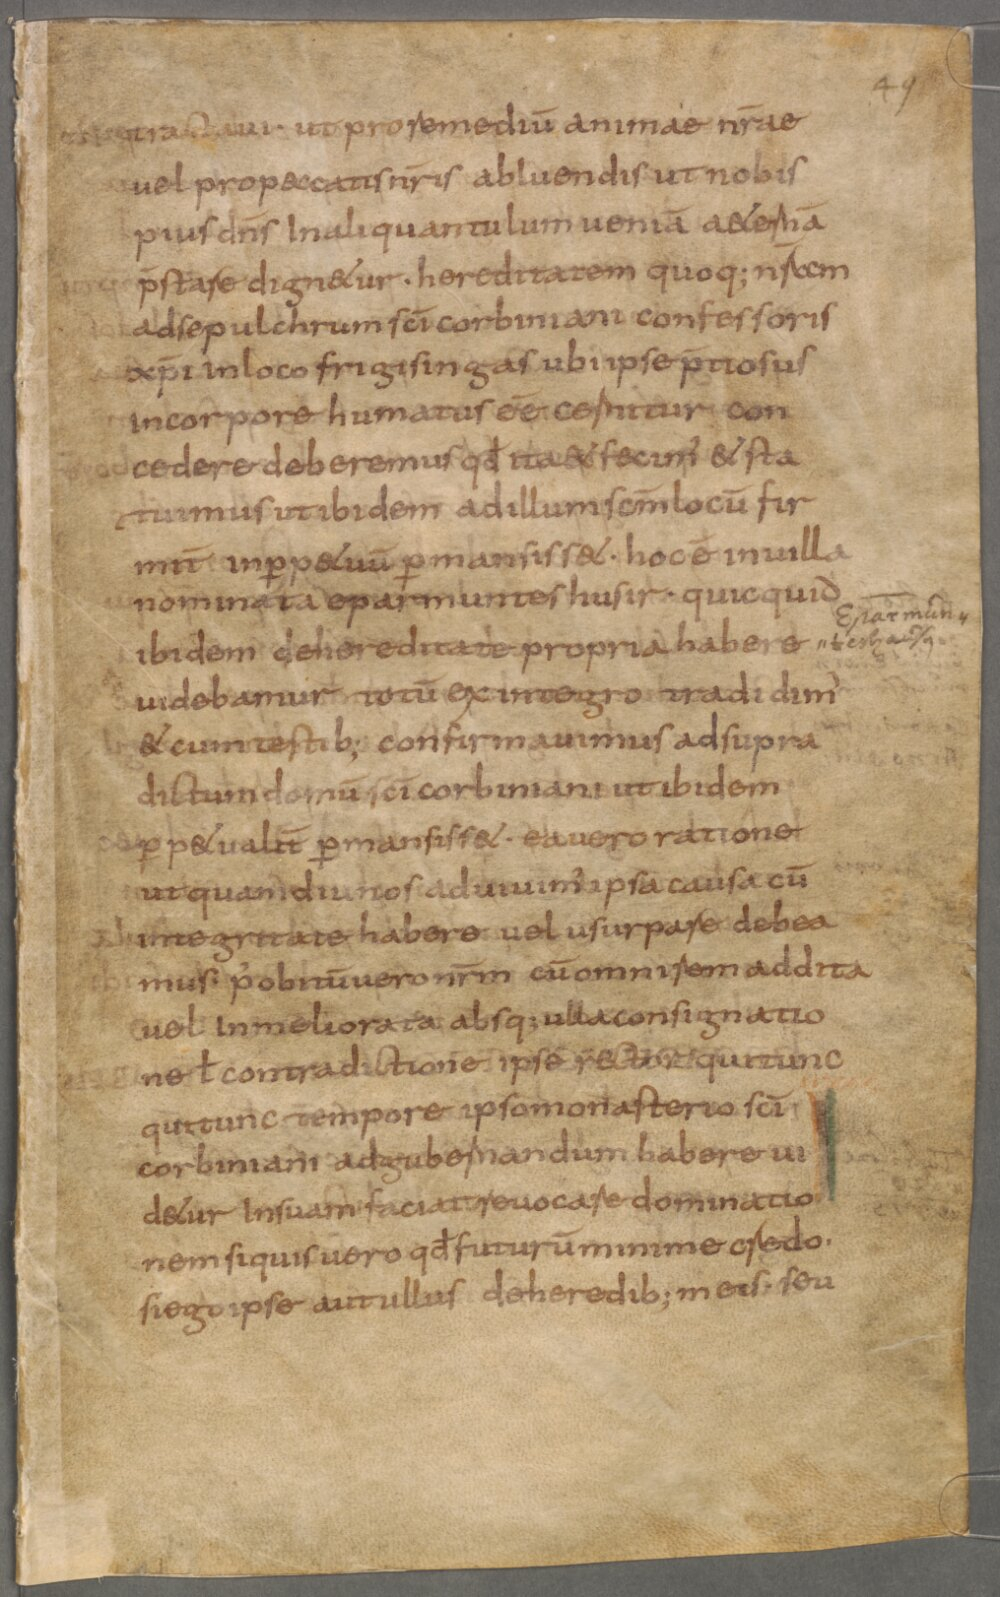 49
tractavi· ut pro remediū animae nr̄ae
uel pro peccatis nr̄is abluendis ut nobis
pius dn̄s In aliquantulum ueniā aet&ernā
p̄stare dign&ur · hereditatem quoq; nr̄am
ad sepulchrum sc̄i corbiniani confessoris
xp̄i In loco frigisingas ubi ipse p̄tiosus
In corpore humatus eē cernitur con
cedere deberemus qđ ita & fecim̄ & sta
tuimus ut ibidem ad illum sc̄m locū fir
mit̄ in p̱p&uū p̱mansiss& · hoc ē in uilla
nominata eparmuntes husir · quicquid
Epar mun„
„tes hus
ibidem de hereditate propria habere
uidebamur totū ex integro tradidim̄
& cum testib; confirmauimus ad supra
dictum domū sc̄i corbiniani ut ibidem
p̱p&ualit̄ p̱mansiss& · ea uero ratione
ut quamdiu nos aduiuim̄ ipsa causa cū
integritate habere uel usurpare debea
mus· p̓ obitū uero nr̄m cū omni rem addita
uel In meliorata absq; ulla consignatio
ne ł contradictione ipse rector qui tunc
qui tunc tempore ipso monasterio sc̄i
corbiniani ad gubernandum habere ui
d&ur In suam faciat reuocare dominatio
nem si quis uero qđ futurū minime credo·
si ego ipse aut ullus de heredib; meis· seu